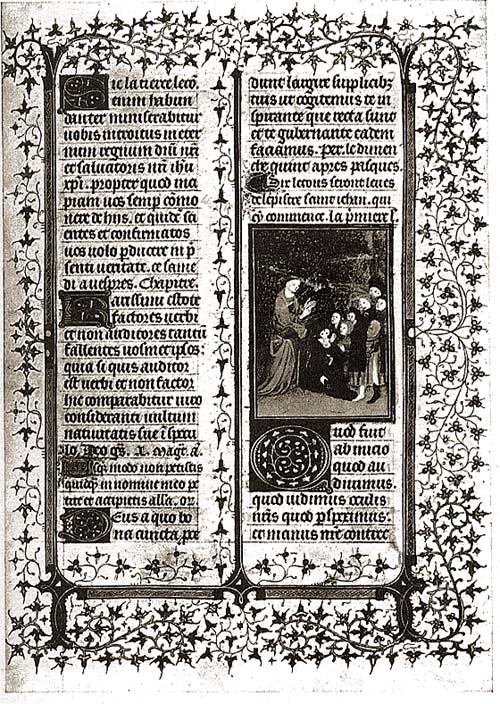 Sic la tierce leco
enim habun
danter ministrabitur
uobis introitus in eter
num regnum dni nri
et saluatoris nri ihu
xpi. propter quod inci
piam uos semp cōmo
nere de hiis. et quidē sci
entes et confirmatos
uos uolo pducere in p
senti ueritate. ce same
di a uespres. Chapitre.
arissimi estote
factores uerbi
et non auditores tantū
fallentes uosmetipsos:
quia si quis auditor
est uerbi et non factor
hic comparabitur uiro
consideranti uultum
natiuitatis sue ī specu
lo. Deo gs. X. Magr. a.
Usqz modo non petistis
quicqz in nomine meo pe
tite et accipietis alla. or.
Deus a quo bo
na cuncta pro
dunt largire supplicibz
tuis ut cogitemus te in
spirante que recta sunt
et te gubernante eadem
faciamus. Per. le dimen
che quint apres pasques.
Sir lecons seront leues
de lepistre saint iehan. qui
cy commence. la pmiere l.
Quod fuit
ab inicio
quod au
diuimus.
quod uidimus oculis
nris quod pspeximus.
et manus nre contrec